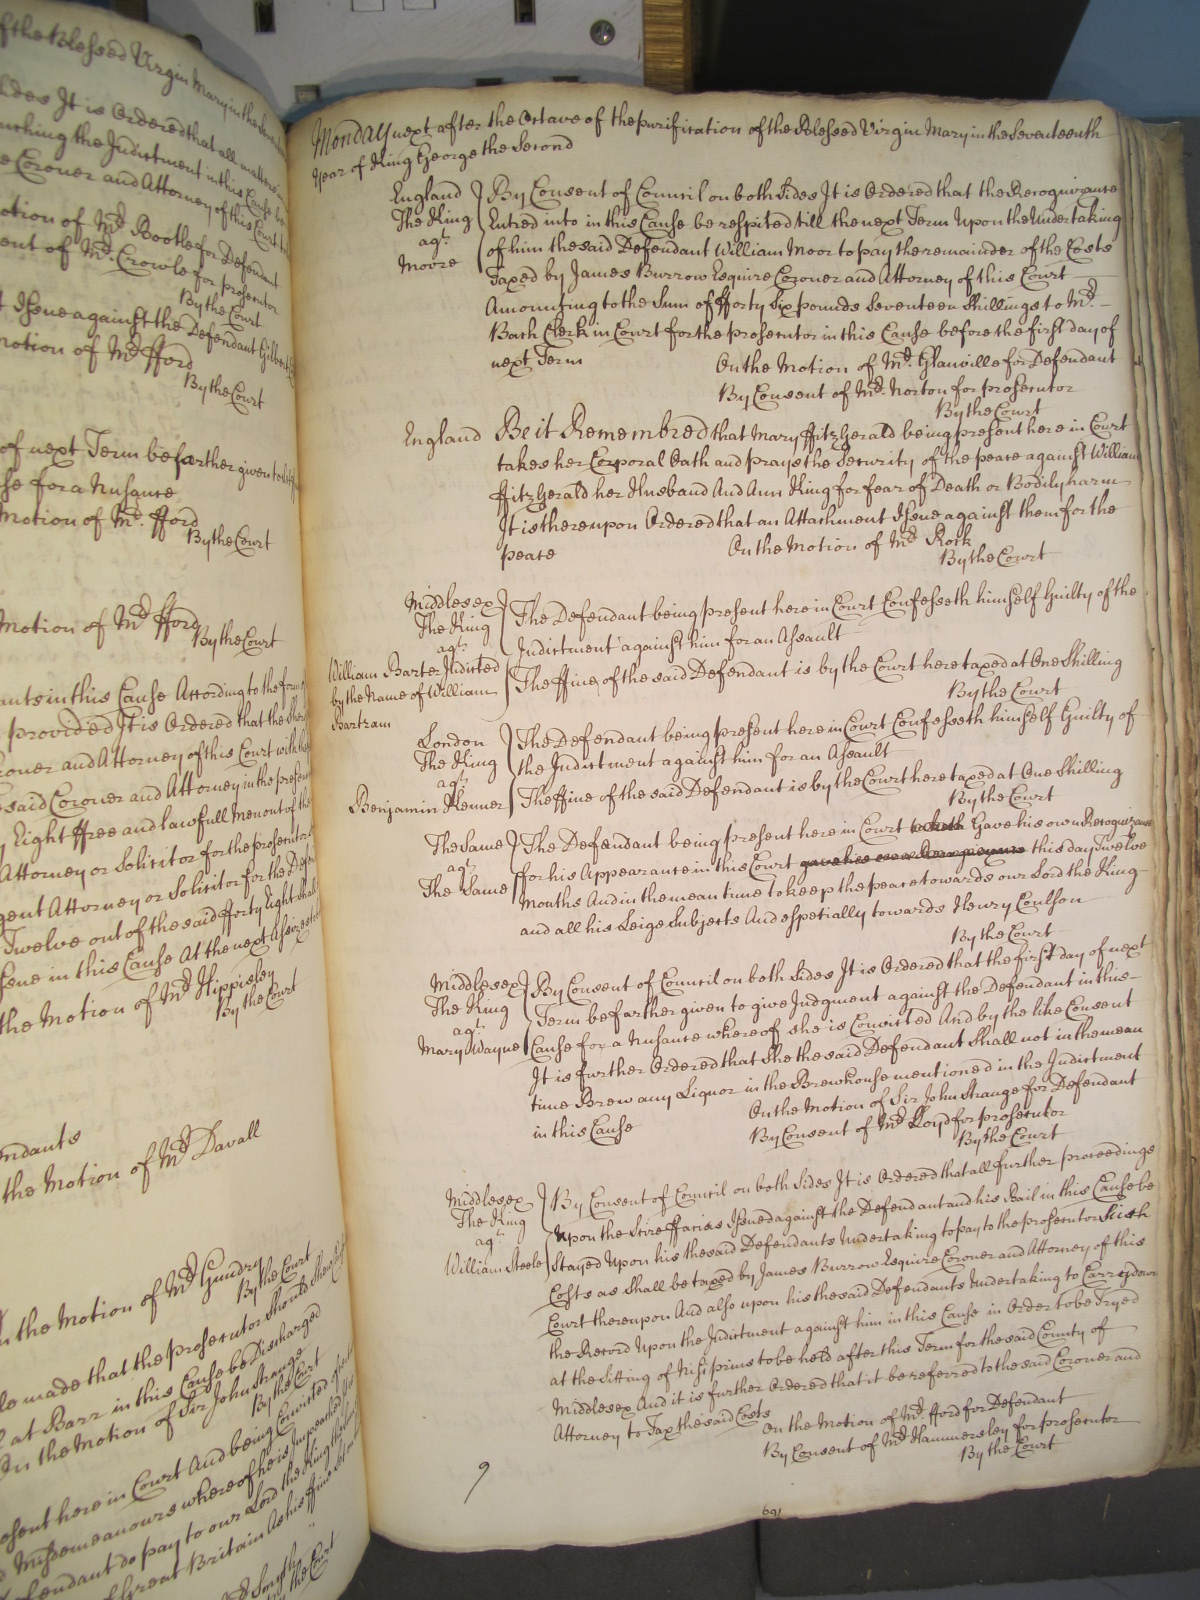 of the Blessed Virgin Mary in the
sides It is Ordered that all matters
the Indictment in this Cause be
Coroner and Attorney of this Court
Motion of Mr. Bootle for Defendant
of Mr. Crowle for prosecutor
By the Court
Issue against the Defendant Gilbert
Motion of Mr. fford
By the Court
of next Term be farther given to
for a Nusance
Motion of Mr. fford
By the Court
Motion of Mr. fford
By the Court
in this Cause According to the form
provided It is Ordered that the
and Attorney of this Court
said Coroner and Attorney in the
Eight ffree and lawfull Men out of the
Attorney or Solicitor for the prosecutor
Attorney or Solicitor for the
Twelve out of the said fforty Eight
in this Cause At the next Assizes
the Motion of Mr. Hippisley
By the Court
the Motion of Mr. Davall
the Motion of Mr. Gundry
By the Court
made that the prosecutor should shew
at Barr in this Cause be Discharged
On the Motion of Sir John Strange
By the Court
here in Court And being Convicted of
Misdemeanours whereof he is Impeached
do pay to our Lord the King
of Great Britain As his ffine
By the Court
Monday next after the Octave of the purification of the Blessed Virgin Mary in the Seventeenth
Year of King George the Second
England
The King
agt.
Moore
By Consent of Council on both Sides It is Ordered that the Recognizance
Entred into in this Cause be respited till the next Term Upon the Undertaking
of him the said Defendant William Moor to pay the remainder of the Costs
Taxed by James Burrow Esquire Coroner and Attorney of this Court
Amounting to the Sum of fforty Six pounds Seventeen Shillings to Mr.
Barh Clerk in Court for the prosecutor in this Cause before the first day of
next Term
On the Motion of Mr. Glanville for Defendant
By Consent of Mr. Norton for prosecutor
By the Court
England
Be it Remembred that Mary ffitzGerald being present here in Court
takes her Corporal Oath and prays the Security of the peace against William
ffitzGerald her Husband And Ann King for fear of Death or Bodily harm
It is thereupon Ordered that an Attachment Issue against them for the
peace
On the Motion of Mr. Rock
By the Court
Middlesex
The King
agt.
William Barter Indicted
by the Name of William
Bartram
The Defendant being present here in Court Confesseth himself Guilty of the
Indictment against him for an Assault
The ffine of the said Defendant is by the Court here taxed at One Shilling
By the Court
London
The King
agt.
Benjamin Kenner
The Defendant being present here in Court Confesseth himself Guilty of
the Indictment against him for an Assault
The ffine of the said Defendant is by the Court here taxed at One Shilling
By the Court
The Same
agt.
The Same
The Defendant being present here in Court Gave his own Recognizance
for his Appearance in this Court this day Twelve
Months And in the mean time to keep the peace towards our Lord the King
and all his Leige Subjects And espetially towards Henry Coulson
By the Court
Middlesex
The King
agt.
Mary Wayne
By Consent of Council on both Sides It is Ordered that the first day of next
Term be farther given to give Judgment against the Defendant in this
Cause for a Nusance whereof she is Convicted And by the like Consent
It is further Ordered that She the said Defendant Shall not in the mean
time Brew any Liquor in the Brewhouse mentioned in the Indictment
in this Cause
On the Motion of Sir John Strange for Defendant
By Consent of Mr. Lloyd for prosecutor
By the Court
Middlesex
The King
agt.
William Steele
By Consent of Council on both Sides It is Ordered that all further proceedings
upon the Scire ffacias Issued against the Defendant and his Bail in this Cause be
Stayed Upon his the said Defendants Undertaking to pay to the prosecutor Such
Costs as Shall be taxed by James Burrow Esquire Coroner and Attorney of this
Court thereupon And also upon his the said Defendants Undertaking to Carry down
the Record Upon the Indictment against him in this Cause in Order to be Tryed
at the Sitting of Nisi prius to be held after this Term for the said County of
Middlesex And it is further Ordered that it be referred to the said Coroner and
Attorney to Tax the said Costs
On the Motion of Mr. fford for Defendant
By Consent of Mr. Hammersley for prosecutor
By the Court
9
691